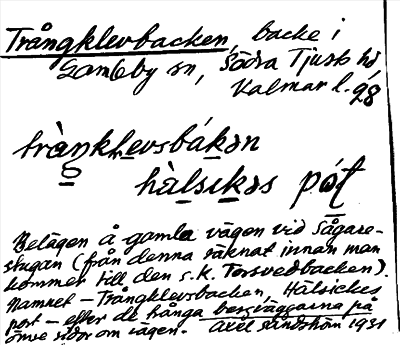 Trångklevbacken, backe i
Gamleby sn, Södra Tjust hd
Kalmar l. 98
tràŋkle̱vsbák̠ən
hàl̠sik̠əs pót̠
Belägen å gamla vägen vid Sågare-
stugan (från denna räknat innan man
kommer till den s.k. Torsvedbacken).
Namnet – Trångklevsbacken, Hälsickes
port – efter de trånga bergväggarna på
ömse sidor om vägen. Axel Sandström 1931